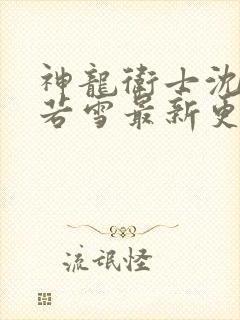 神龍衛士沈
若雪最新更
流氓怪